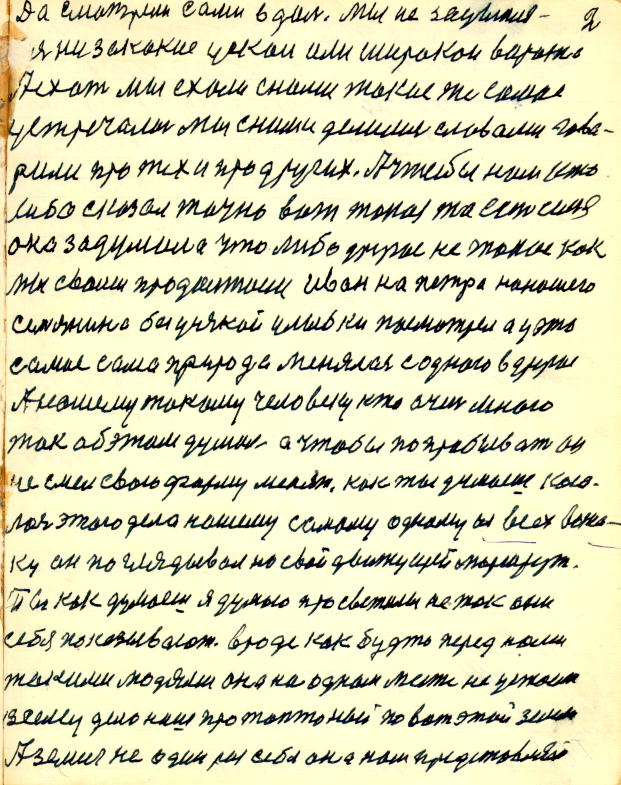 Да смотрели сами вдол. Мы не зацепил- 2
я ни за какие узкой или широкой варот
Лехат мы ехали снами такие же самое
устречали мы сними делили словами гова-
рили про тех и про других. А чтобы нам кто
либо сказал точно вот такая та есть сила
она задумала что либо другое не такое как
мы своим продолжаем Иван на петра нашего
семянина без улыбки посмотрел а у это
самое сама природа менялас с одного в другое
А нашему такому человеку кто очен много
так об этом думал а чтобы попробыват он
не смел свою форму менят. как ты думаеш каса-
лас этого дела нашему самому одному из всех
ку он поглядывал на свой движущей маршрут.
Ты как думаеш я думаю про светили не так они
себя показывают. вроде как будто перед нами
такими людями она на одном месте не устоит
всему дело наш протоптаный по вот этой земли
А земля не один раз себя она нам представляй